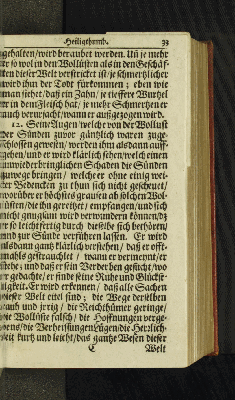 Heiligthumb. 33
gehalten/wird beraubet werden. Uñ je mehr
er so wol in den Wollüsten als in den Geschäf-
ten dieser Welt verstricket ist/je schmertzlicher
wird ihm der Todt fürkommen; eben wie
man siehet/daß ein Zahn/je tieffere Wurtzel
er in dem Fleisch hat/je mehr Schmertzen er
auch verursacht/wann er außgezogen wird.
12. Seine Augen/welche von der Wollust
der Sünden zuvor gäntzlich waren zuge-
schlossen gewesen/werden ihm alsdann auff-
gehen/und er wird klärlich sehen/welch einen
unwiederbringlichen Schaden die Sünden
zuwege bringen/welcher ohne einig wei-
ter Bedencken zu thun sich nicht gescheuet/
worüber er höchstes grausen ab solchen Wol-
lüsten/die ihn gereitzet/empfangen/und sich
nicht gnugsam wird verwundern können/dz
er so leichtfertig durch dieselbe sich bethören/
und zur Sünde verführen lassen. Er wird
alsdann gantz klärlich verstehen/daß er offt-
mahls gestrauchelt/wann er vermeynt/er
stehe; und daß er sein Verderben gesucht/wo
er gedachte/er finde seine Ruhe und Glückse-
ligkeit. Er wird erkennen/daß alle Sachen
dieser Welt eitel sind; die Wege derselben
rauh und jrrig/die Reichthümer geringe/
die Wollüste falsch/die Hoffnungen verge-
bens/die Verheissungen Lügen/die Herrlich-
keit kurtz und leicht/das gantze Wesen dieser
C Welt